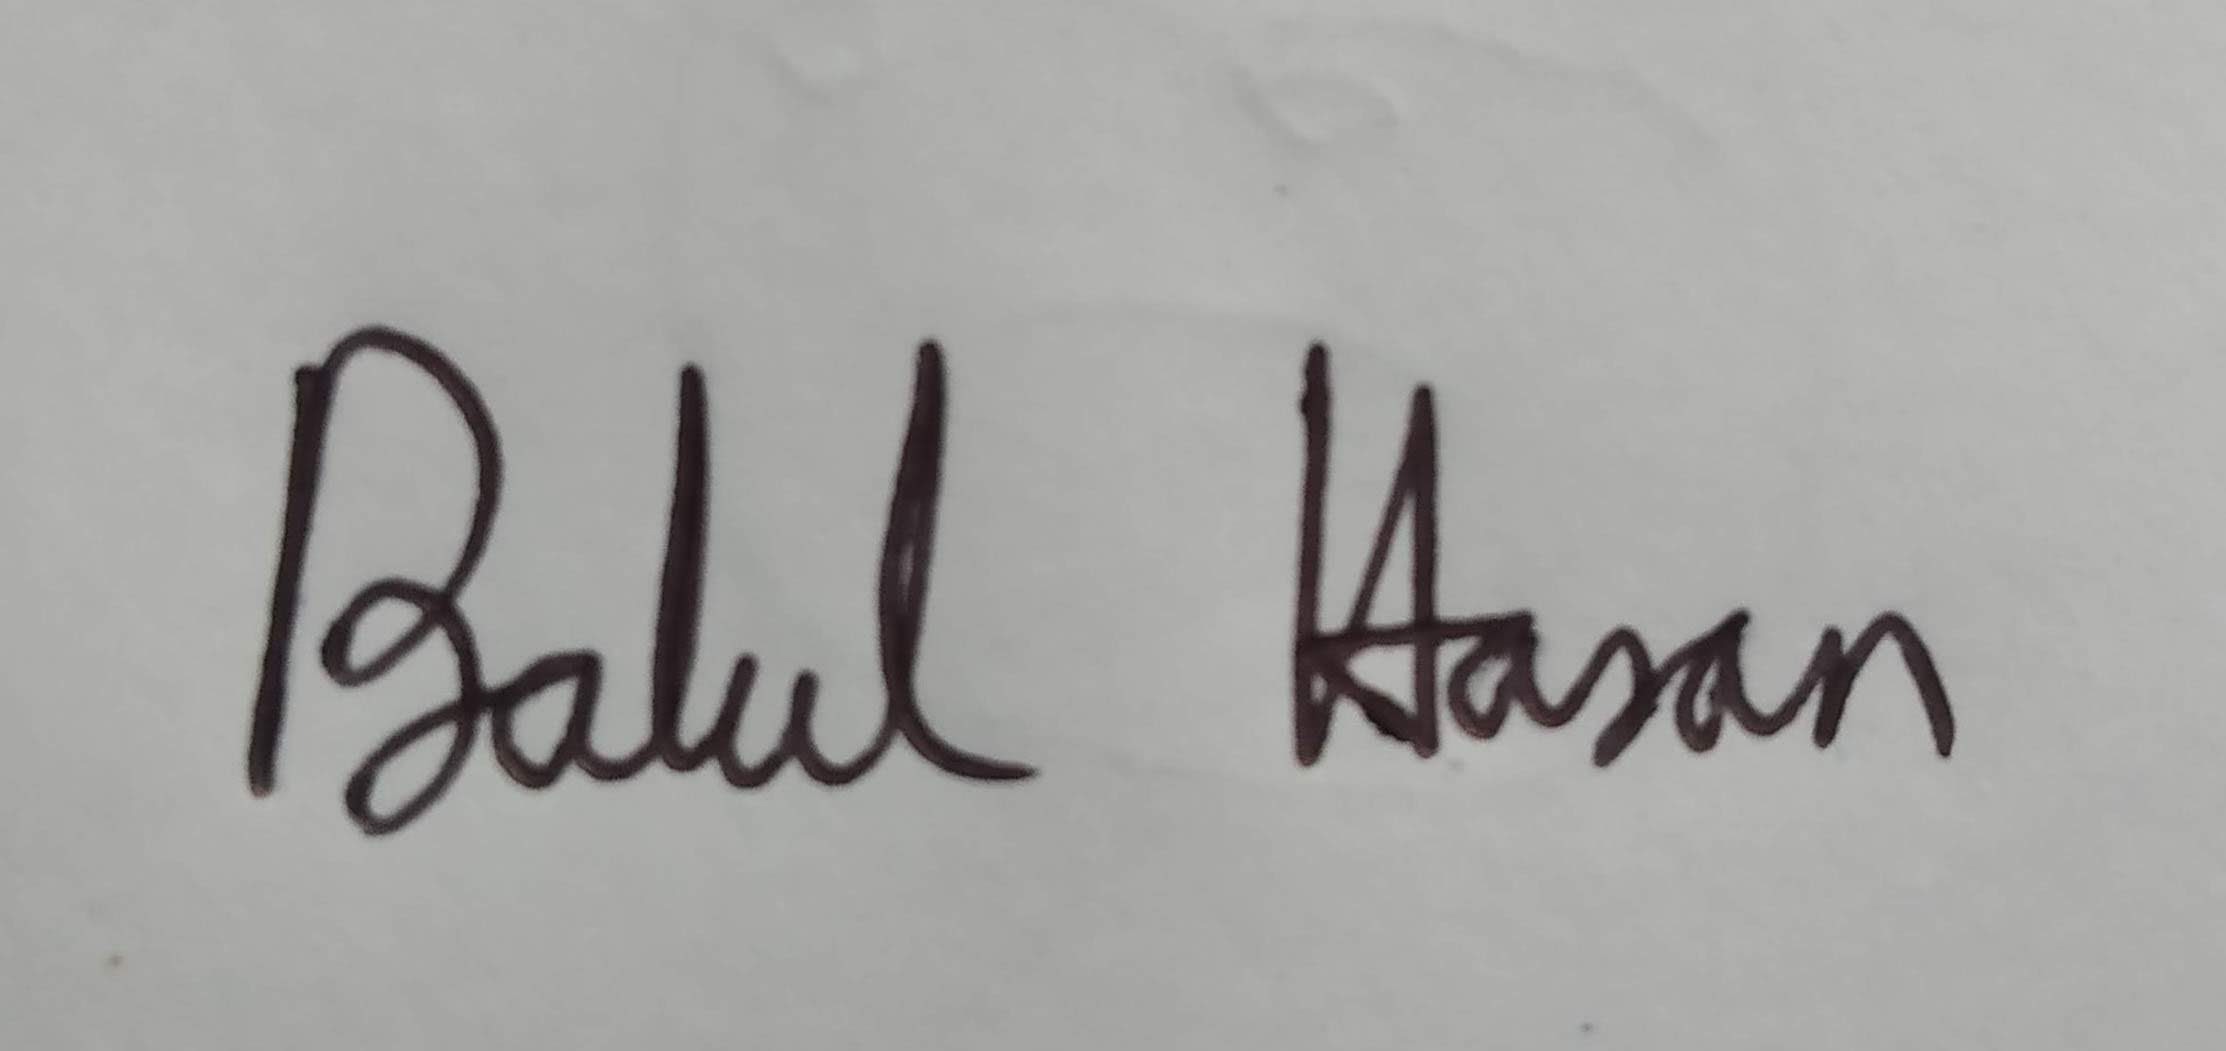 Balul Hasan